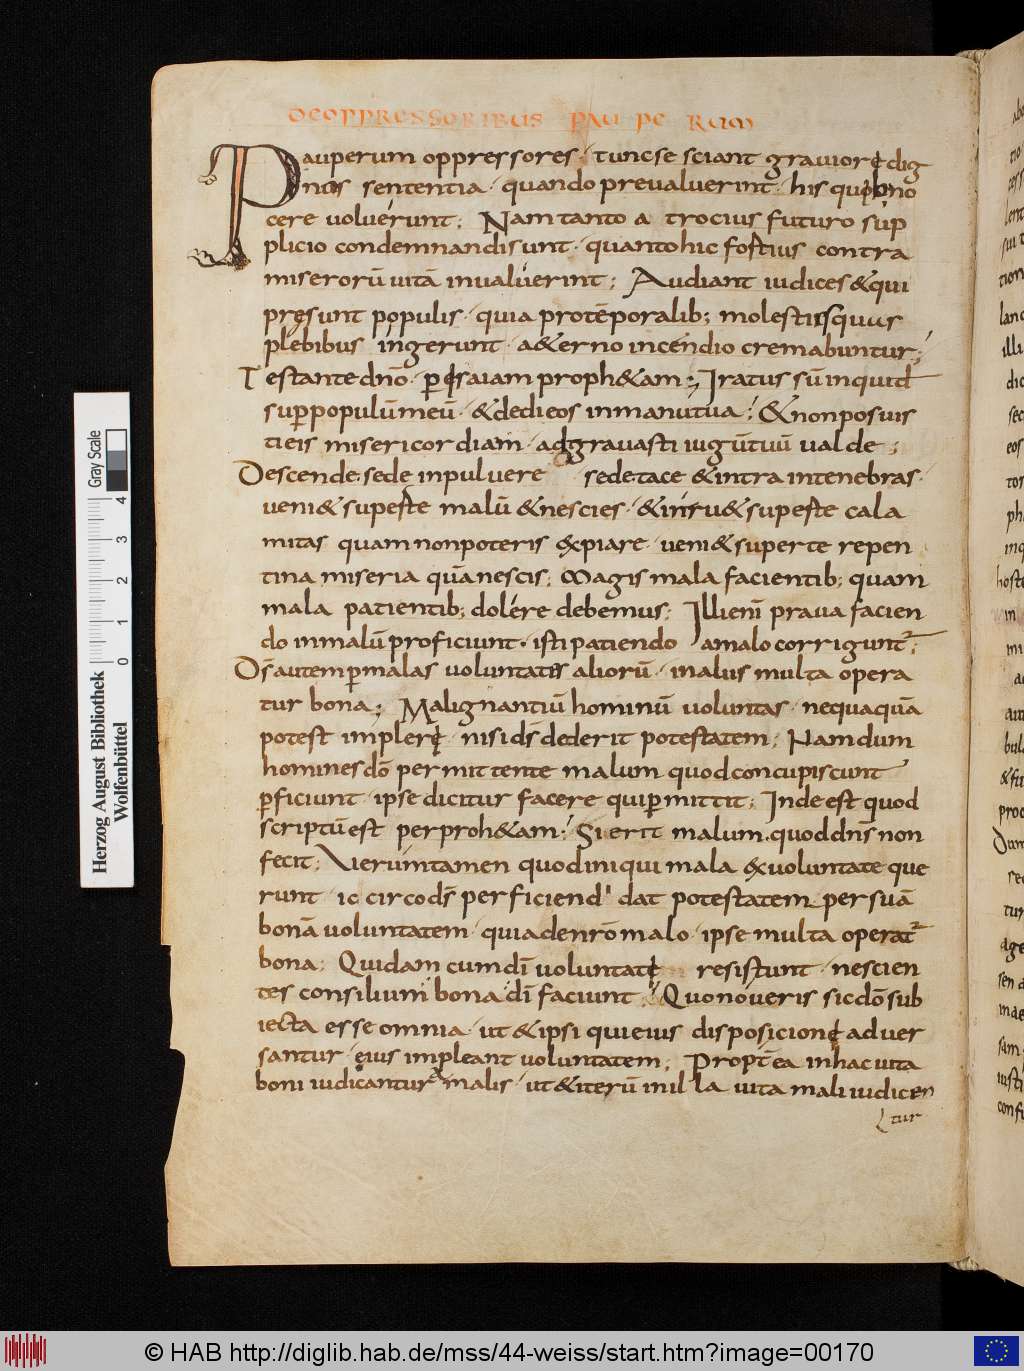 DE OPPRESSORIBUS PAUPERUM
Pauperum oppressores · tunc se sciant graviore dig
nos sententia · quando prevaluerint · his quib; no
cere voluerunt; Nam tanto a trocius futuro sup
plicio condemnandi sunt · quanto hic fortius contra
miserorū vitā invaluerint; Audiant iudices & qui
pręsunt populis · quia pro tēporalib; molestiis quas
plebibus ingerunt · a&erno incendio cremabuntur;
Testante dn̄o · p̱ esaiam proph&am; Iratus sū inquid
sup̱ populū meū · & dedi eos in manu tua; & non posuis
ti eis misericordiam · adgravasti iugū tuū valde;
Descende · sede in pulvere sede tace & intra in tenebras ·
veni& sup te malū & nescies · & inru& sup te cala
mitas quam non poteris expiare · veni& super te repen
tina miseria quā nescis; Magis mala facientib; quam
mala patientib; dolere debemus; Illi enī prava facien
do in malū proficiunt · isti patiendo a malo corrigunt̄;
Ds̄ autem p̱ malas voluntates aliorū · in aliis multa opera
tur bona; Malignantiū hominū voluntas · nequaquā
potest implerę · nisi ds̄ dederit potestatem; Nam dum
homines dō permittente malum quod concupiscunt
p̱ficiunt · ipse dicitur facere qui p̱mittit; Inde est quod
scriptū est per proph&am; Si erit malum · quod dn̄s non
fecit; Verumtamen quod iniqui mala ex voluntate que
runt · ic circo ds̄ perficiend' dat potestatem per suā
bonā voluntatem · quia de nr̄o malo · ipse multa operat̄
bona; Quidam cum dī voluntatę resistunt · nescien
tes consilium bona dī faciunt; Quo noveris sic dō sub
iecta esse omnia · ut & ipsi qui eius disposicionę adver
santur · eius impleant voluntatem; Propt̄ea in hac vita
boni iudicantur a malis · ut & iterū in illa vita mali iudicen
tur
Herzog August Bibliothek
Wolfenbüttel
0 1 2 3 4
Gray Scale
© HAB http://diglib.hab.de/mss/44-weiss/start.htm?image=00170